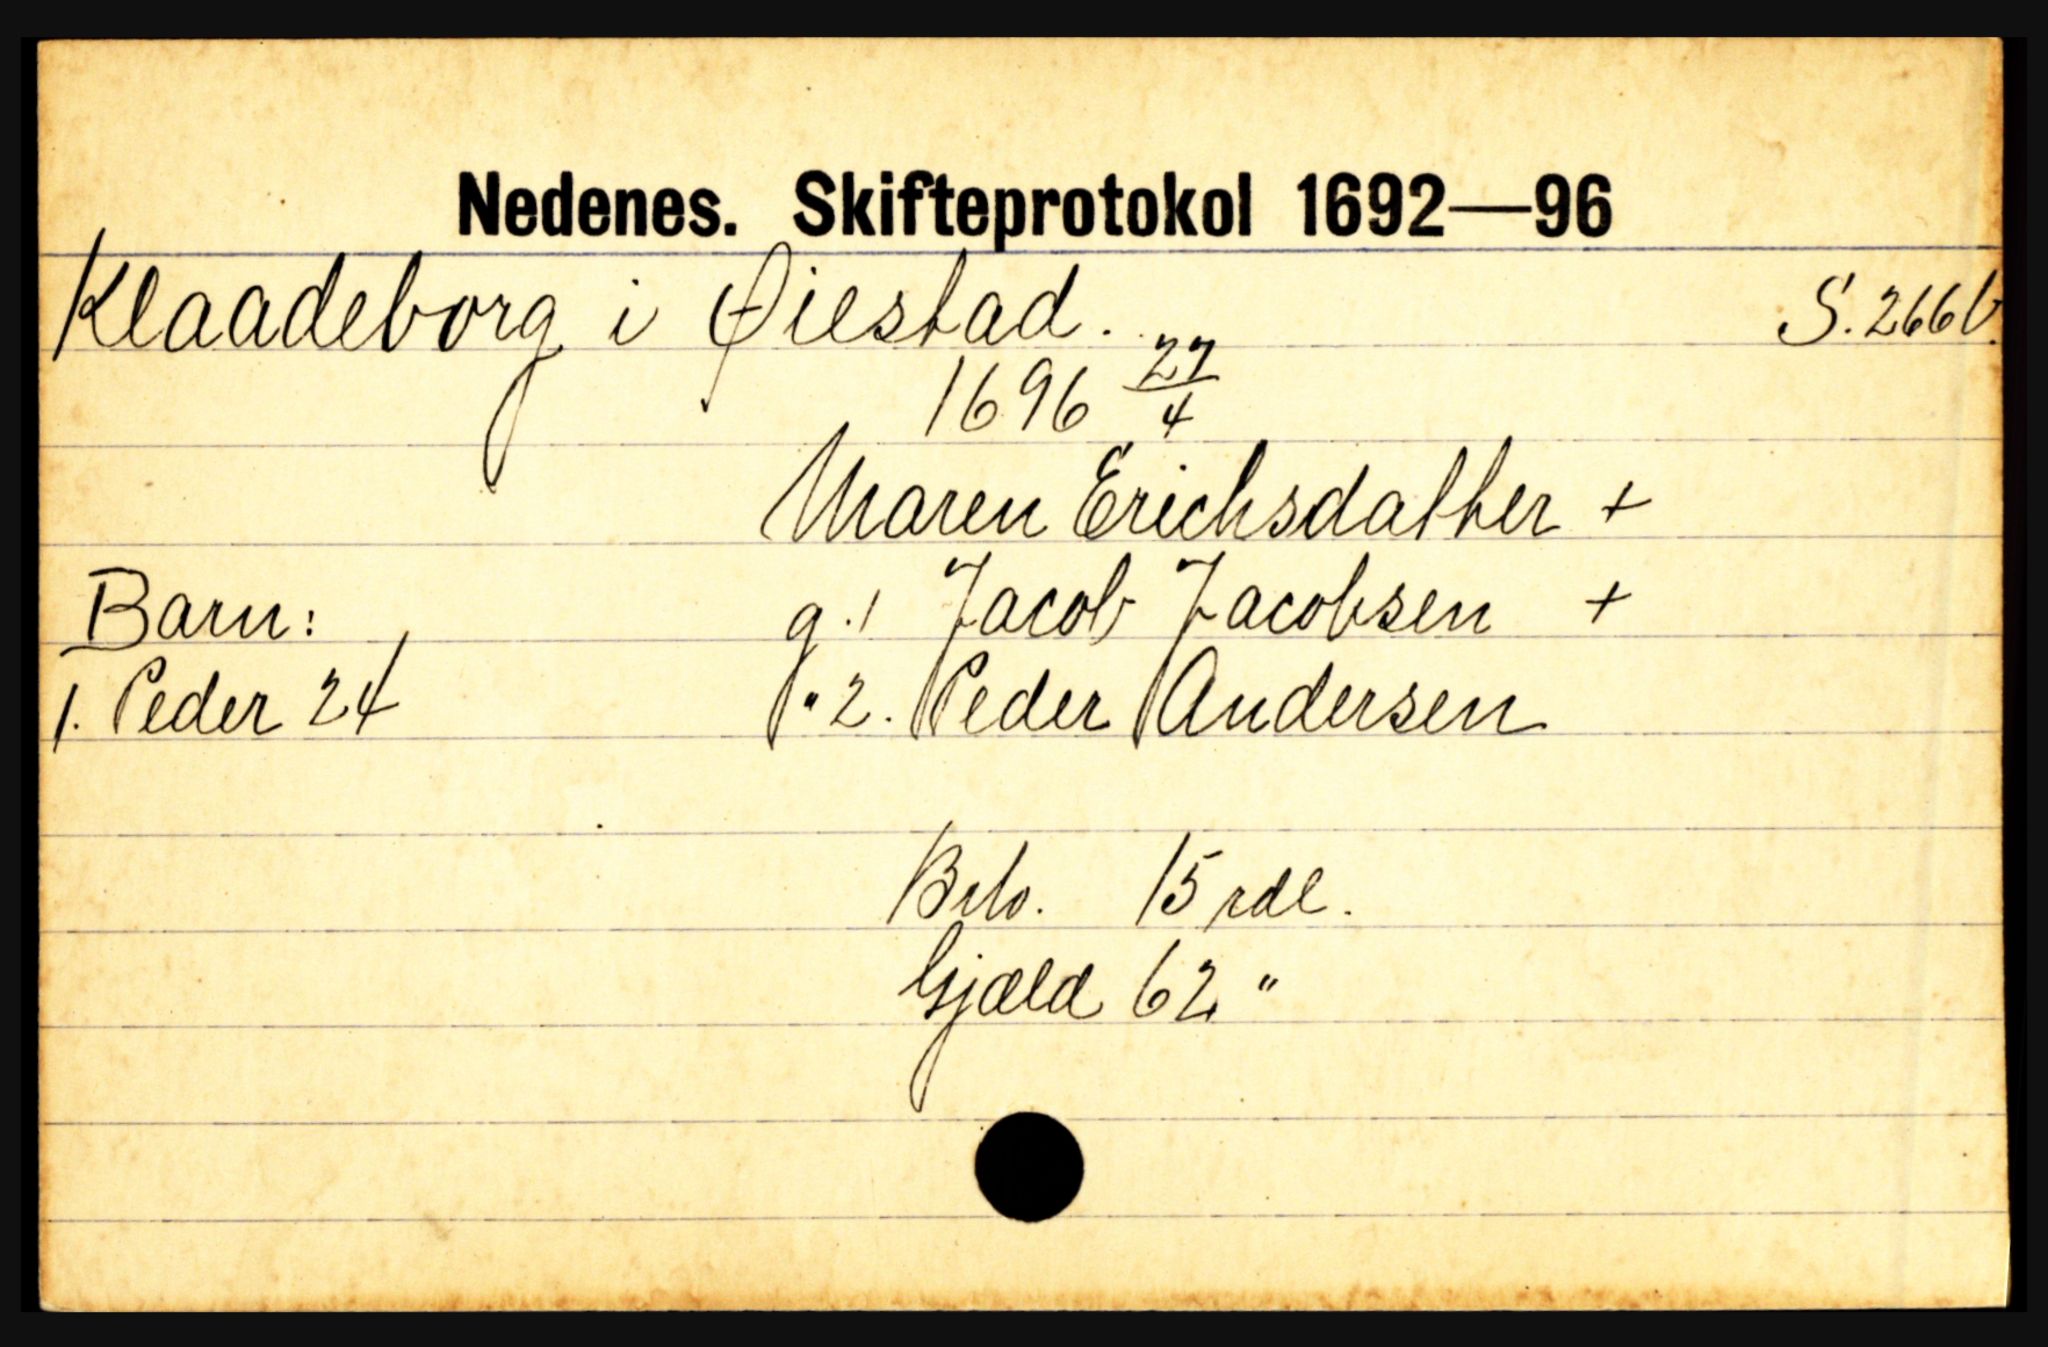 Nedenes. Skifteprotokol 1692—96
Klaadeborg i Øiestad. S. 266b.
1696 27/4
Maren Erichsdatter +
Barn: g. 1 Jacob Jacobsen +
1. Peder 24 " 2. Peder Andersen
Brto. 15 rdl.
Gjæld 62 "